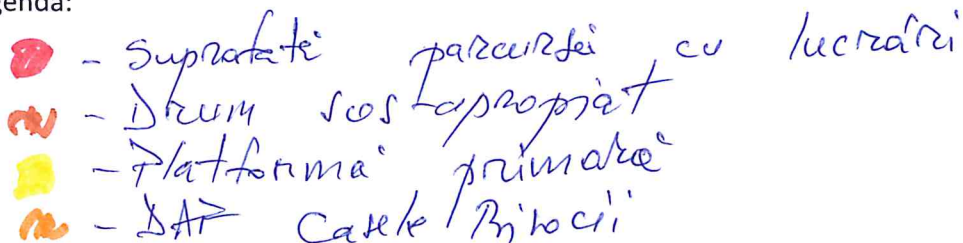 genda:
- Suprafata parcursei cu lucrări
- Drum scos-apropiat
- Platformă primară
- DAP Casele